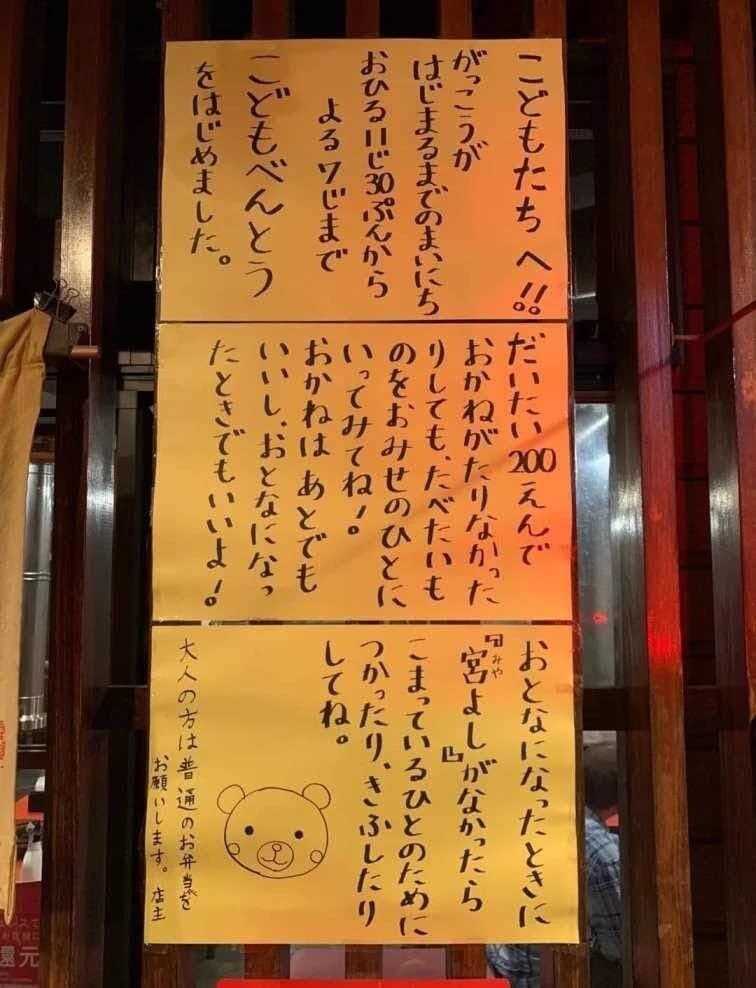 こどもたち へ!!
がっこうが
はじまるまでのまいにち
おひる11じ30ぷんから
よる7じまで
こどもべんとう
をはじめました。
だいたい200えんで
おかねがたりなかった
りしても、たべたいも
のをおみせのひとに
いってみてね!。
おかねは あとでも
いいし、おとなになっ
たときでもいいよ!。
おとなになったときに
「宮よし」がなかったら
みや
こまっているひとのために
つかったり、きふしたり
してね。
大人の方は普通のお弁当を
お願いします。店主
還元